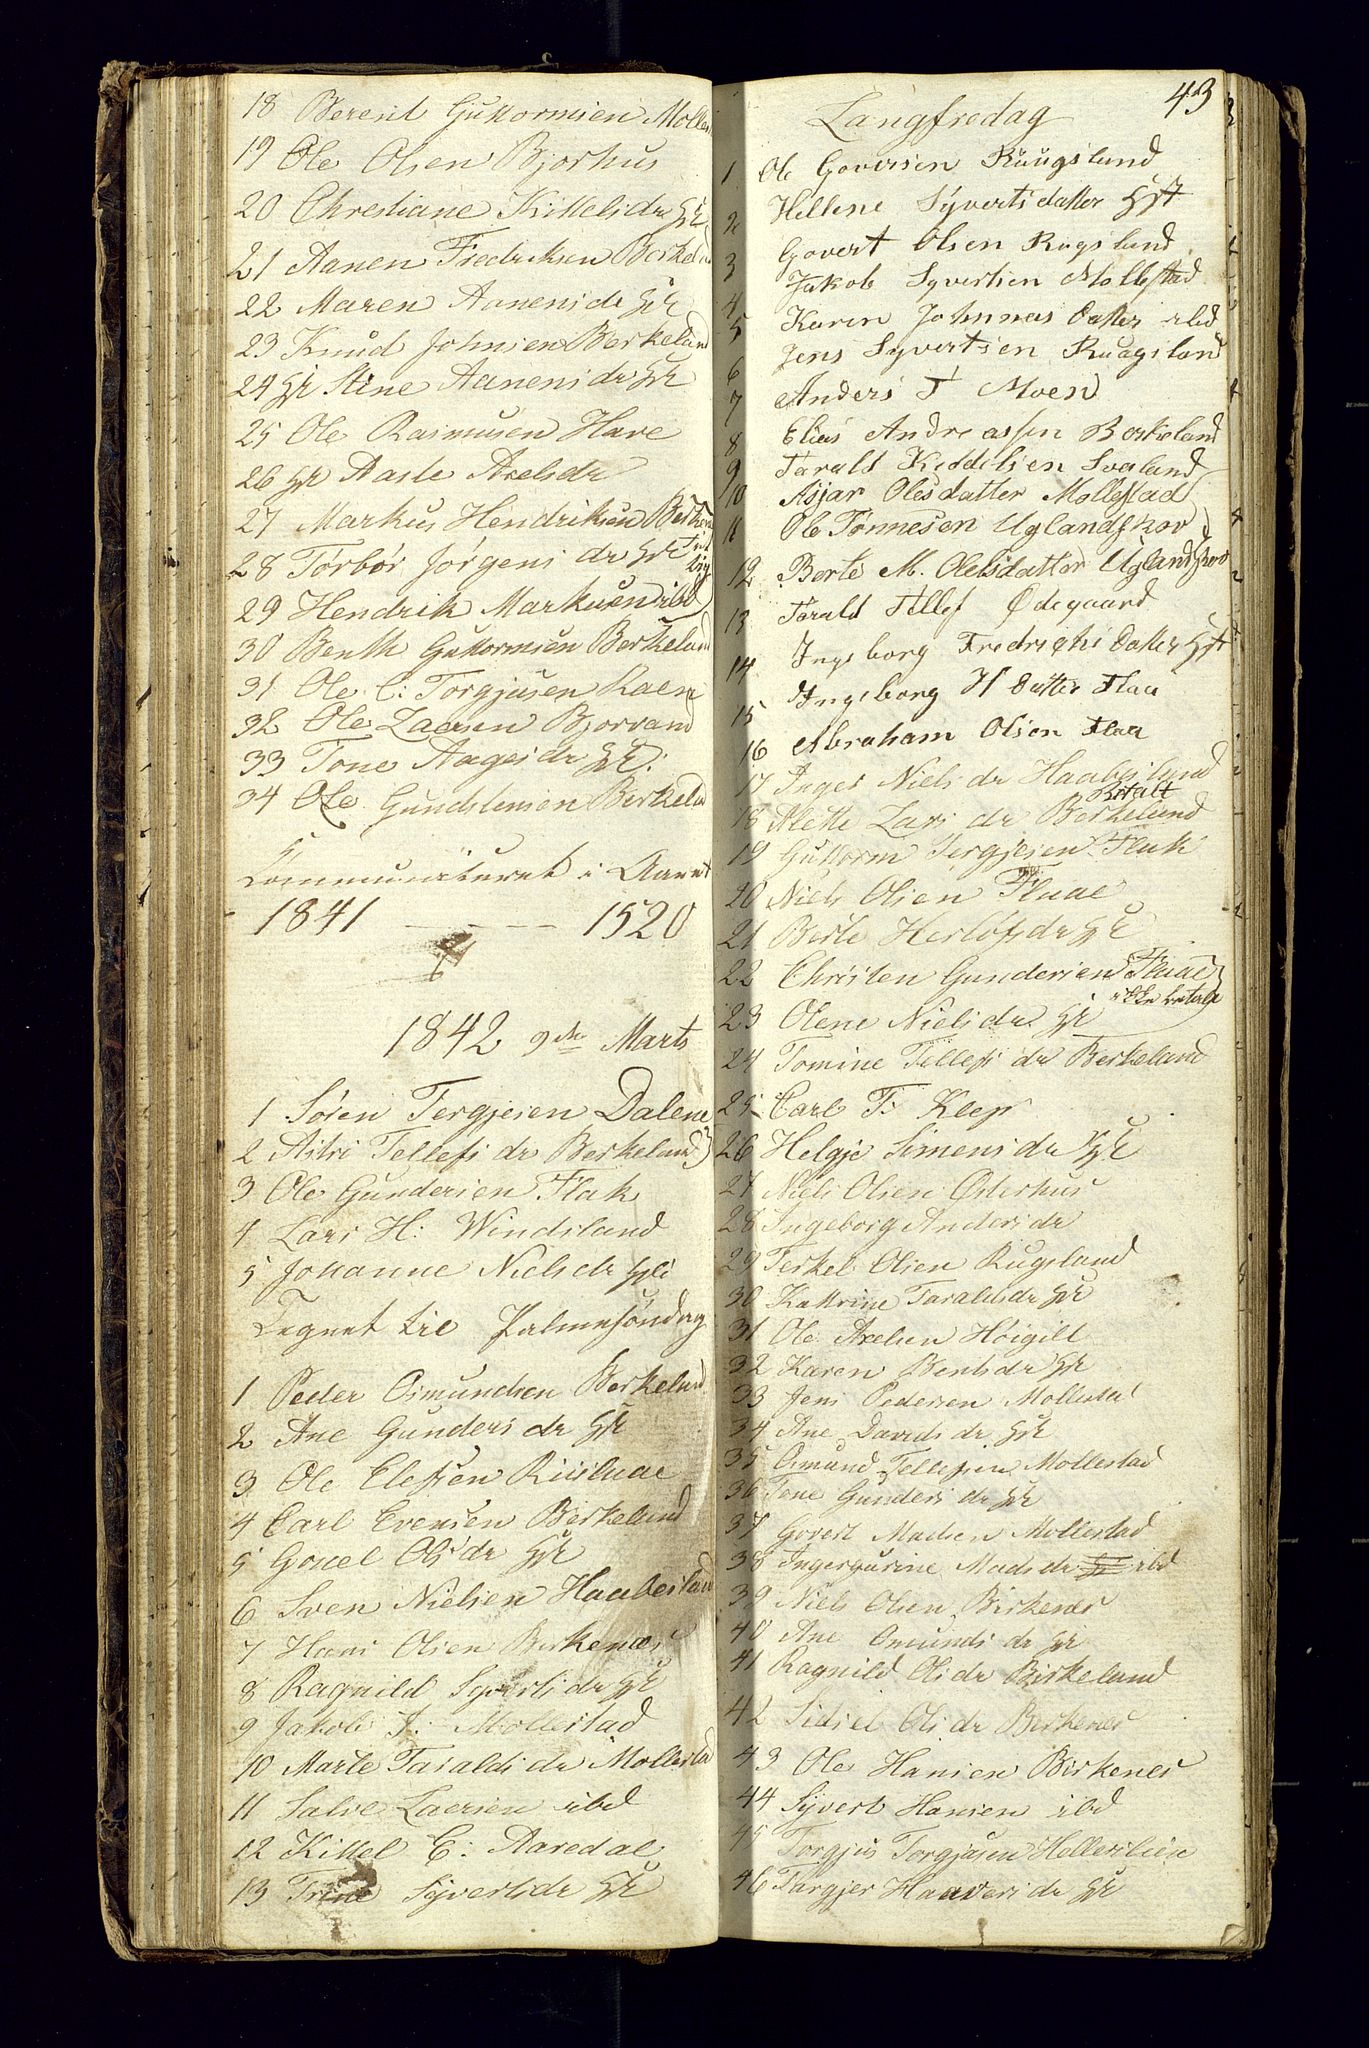 18 Berent Guttormsen Molles
19 Ole Olsen Bjorhus
20 Chrestiane Kittelsdr HK
21 Aanen Fredriksen Berkeld
22 Maren Aanensdr HK
23 Knud Johnsen Berkeland
24 HK Stine Aanensdr HK
25 Ole Rasmusen Have
26 HK Aasle Axelsdr
27 Markus Hendriksen Berken
28 Torbør Jørgens dr HK
29 Hendrik Markusen ibd
30 Benth Guttormsen Berkeland
31 Ole C: Torgjusen Raen
32 Ole Laersen Bjorvand
33 Tone Aagesdr HK:
34 Ole Gundstensen Berkeld
Communiceret i Aaret
1841 - - - - 1520
1842 9de Marts
1 Søren Tergjesen Dalene
2 Astri Tellefs dr Berkeland
3 Ole Gundersen Flak
4 Lars H: Windsland
5 Johanne Nielsdr
Tegnet til Palmesøndag
1 Peder Osmundsen Berkeland
2 Ane Gunders dr HK
3 Ole Elefsen
4 Carl Evensen Berkeland
5 Gonel Olsdr HK
6 Sven Nielsen Haabesland
7 Hans Olsen Berkenæs
8 Ragnild Syvertsdr HK
9 Jakob J: Mollestad
10 Marte Taralds dr Mollestad
11 Salve Laersen ibd
12 Kittel C: Aaredal
13 Trine Syvertsdr HK
43
Langfredag
1 Ole Goversen Ruugsland
2 Hellene Syverts datter Hst
3 Govert Olsen Rugsland
4 Jakob Syvertsen Mollestad
5 Karen Johnnas datter ibd
6 Jens Syvertsen Ruugsland
7 Anders T Moen
8 Elias Andreassen Berkeland
9 Tarald Keddelsen Sveland
10 Asjar Olesdatter Mollestad
11 Ole Tønnesen Uglandskov
12 Berte M. Olelsdatter Uglandskov
13 Torald Tellef Ødegaard
14 Ingeborg Fredrichs datter Hst
15 Ingeborg H datter Flaa
16 Abraham Olsen Flaa
17 Inges Niels dr Haabesland
Betalt
18 Alette Lars dr Berkeland
19 Guttorm Tergjesen Flak
20 Niels Olsen Flaae
21 Berte Herløfsdr HK
22 Christen Gundersen Flaae
ikke betalt
23 Olene Nielsdr HK
24 Tomine Tellefs dr Berkeland
25 Carl T: Klep
26 Helgje Simensdr HK
27 Niels Olsen Østerhus
28 Ingeborg Andersdr
29 Terkel Olsen Rugsland
30 Kattrine Taraldsdr HK
31 Ole Axelsen Høigilt
32 Karen Bentsdr HK
33 Jens Pedersen Mollestad
34 Ane Davids dr HK
35 Osmund Tellefsen Mollestad
36 Tone Gunders dr HK
37 Govert Madsen Mollestad
38 Ingergurine Madsdr ibd
39 Niels Olsen Birkenes
40 Ane Omunds dr HK
41 Ragnild Olsdr Birkeland
42 Sidsel Olsdr Berkenes
43 Ole Hansen Birkenes
44 Syvert Hansen ibd
45 Torgjus Torgjusen Hollerslien
46 Targjer Haaversdr HK